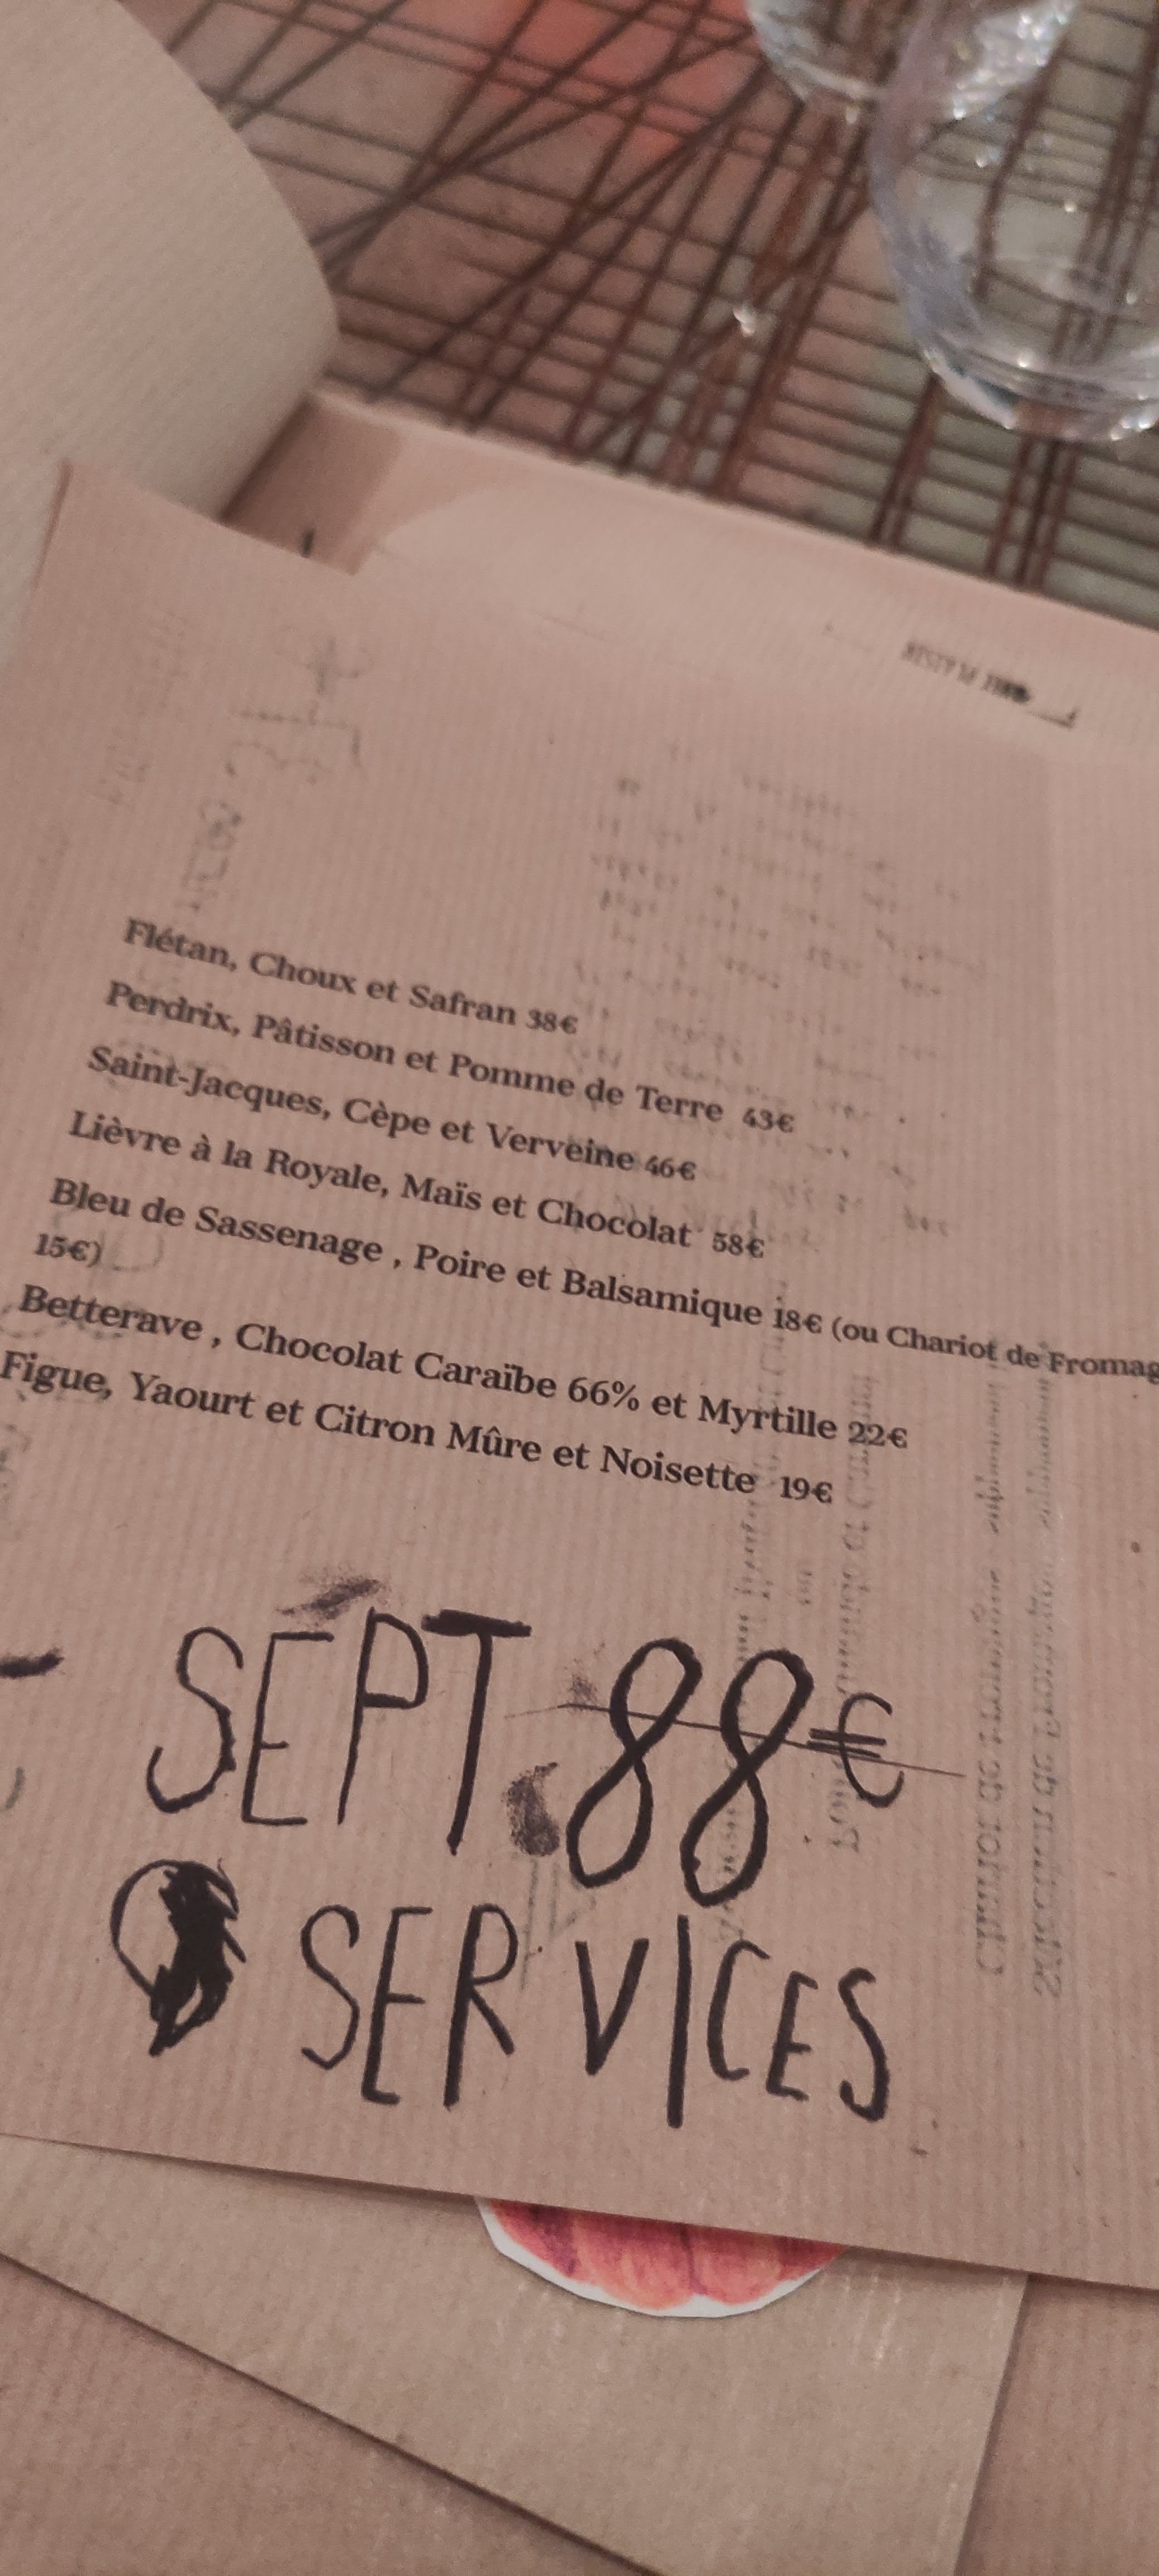 Flétan, Choux et Safran 38€
Perdrix, Pâtisson et Pomme de Terre 43€
Saint-Jacques, Cèpe et Verveine 46€
Lièvre à la Royale, Maïs et Chocolat 58€
Bleu de Sassenage , Poire et Balsamique 18€ (ou Chariot de Fromag
15€)
Betterave , Chocolat Caraïbe 66% et Myrtille 22€
Figue, Yaourt et Citron Mûre et Noisette 19€
SEPT 88€
SERVICES